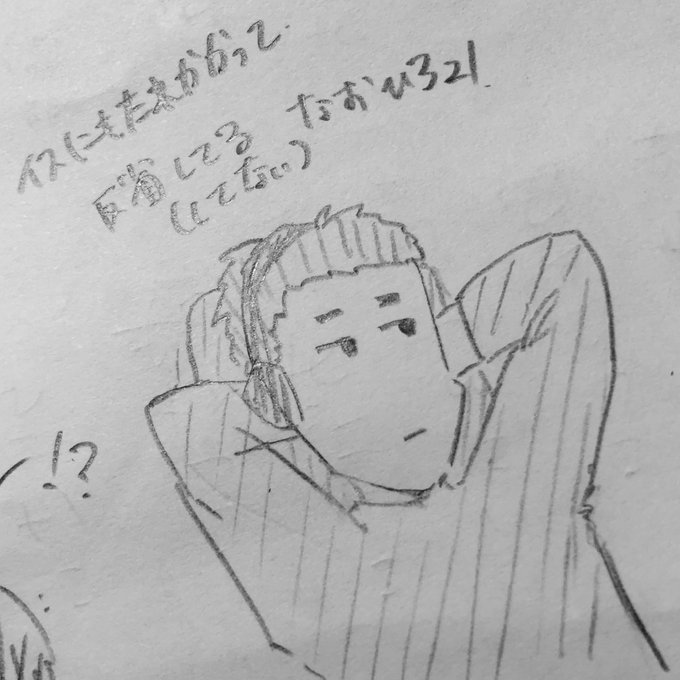 イスにもたれかかって
反省してる なおひろ21
(してない)
!?